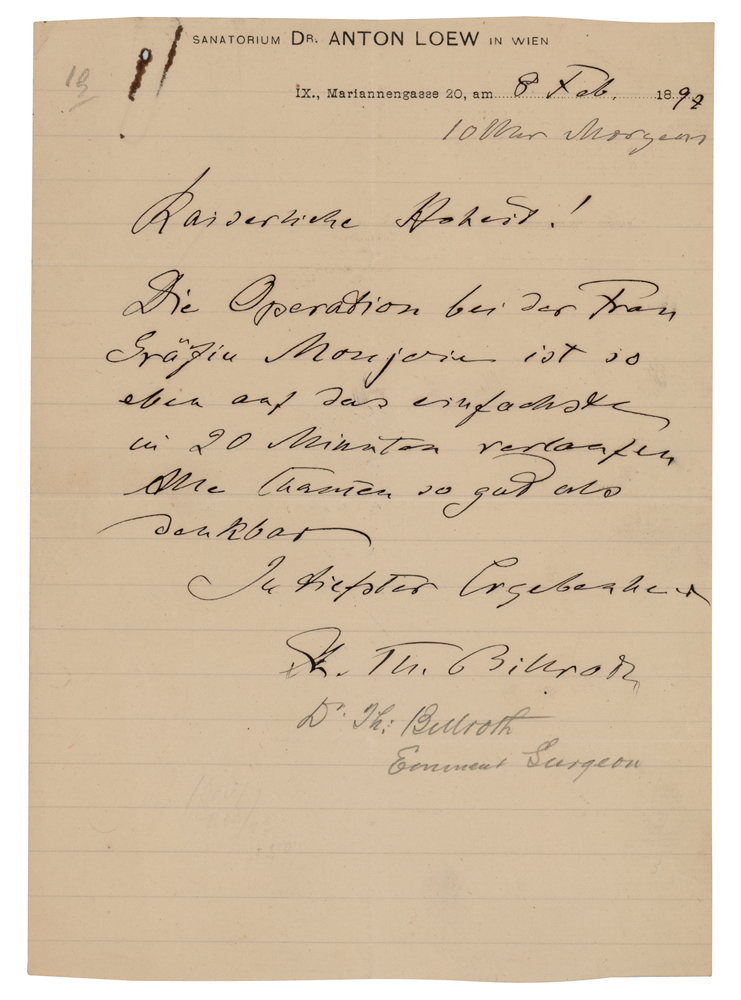 19
SANATORIUM DR. ANTON LOEW IN WIEN
IX., Mariannengasse 20, am 8 Feb. 1892
10 Uhr Morgens
Kaiserliche Hoheit!
Die Operation bei der Frau
Gräfin ist so
eben auf das einfachste
in 20 Minuten verlaufen
Alle so gut als
denkbar
In tiefster Ergebenheit
Th. Billroth
Dr. Th: Billroth
Eminent Surgeon